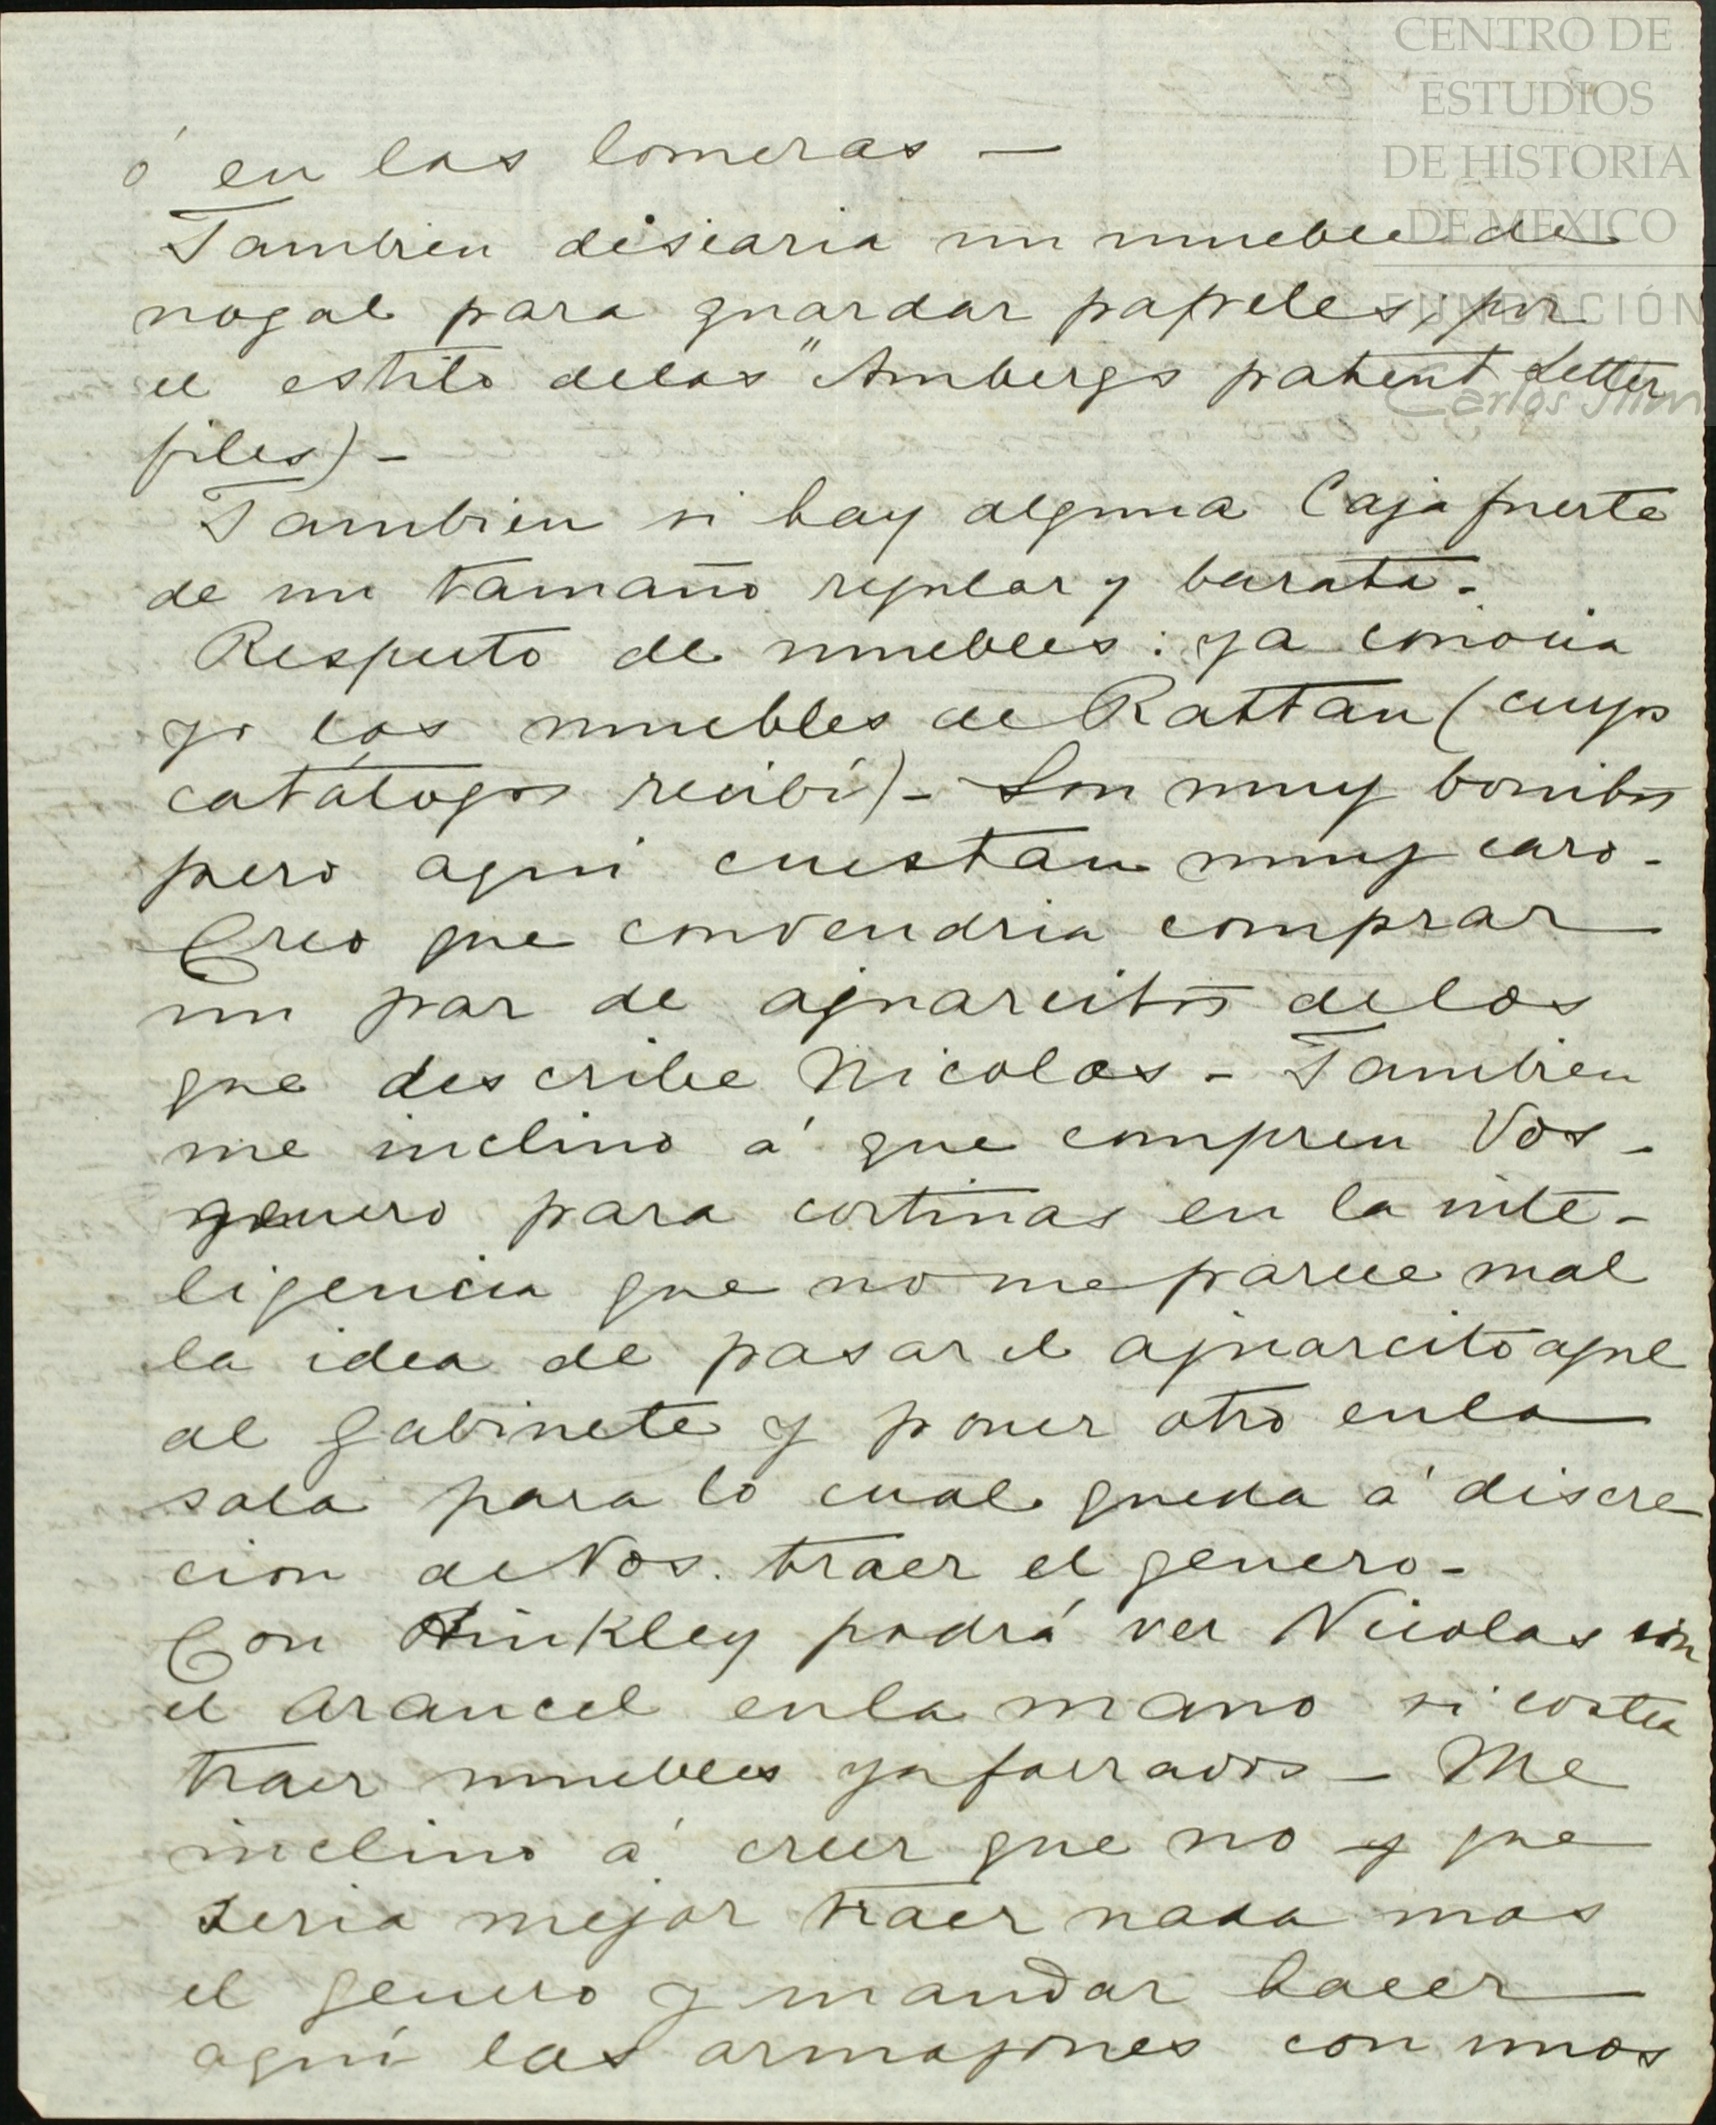 CENTRO DE
ESTUDIOS
DE HISTORIA
DE MEXICO
FUNDACIÓN
Carlos Slim
ó en las lomeras —
Tambien desearia un mueble de
nogal para guardar papeles, por
el estilo delos "Ambergs patent Letter
files) –
Tambien si hay alguna Caja fuerte
de un tamaño regular y barata –
Respecto de muebles: ya conocia
yo los muebles de Rattan (cuyos
catálogos recibí) – Son muy bonitos
pero aqui cuestan muy caro –
Creo que convendria comprar
un par de ajuarcitos delos
que describe Nicolas – Tambien
me inclino á que compren Vds –
genero para cortinas en la inte–
ligencia que no me parece mal
la idea de pasar el ajuarcito aquel
al gabinete y poner otro enla
sala para lo cual queda á discre
cion de Vds. traer el genero –
Con Hinkley podrá ver Nicolas con
el arancel enla mano si costea
traer muebles ya forrados – Me
inclino á creer que no y que
seria mejor traer nada mas
el genero y mandar hacer
aquí las armazones con unos